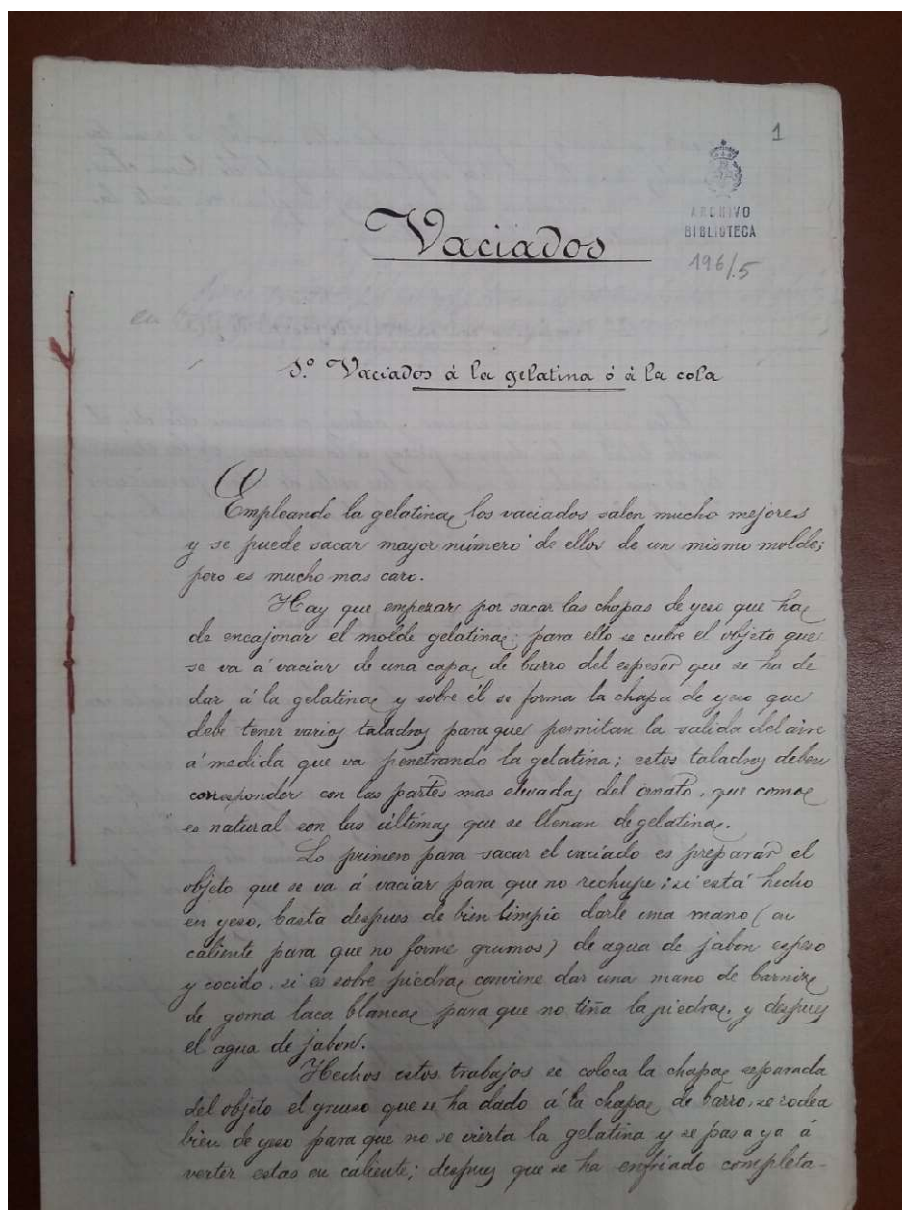 1
ARCHIVO
BIBLIOTECA
196/5
Vaciados
en
1.º Vaciados á la gelatina ó á la cola
Empleando la gelatina los vaciados salen mucho mejores
y se puede sacar mayor número de ellos de un mismo molde;
pero es mucho mas caro.
Hay que empezar por sacar las chapas de yeso que ha
de encajonar el molde gelatina; para ello se cubre el objeto que
se va á vaciar de una capa de barro del espesor que se ha de
dar á la gelatina y sobre él se forma la chapa de yeso que
debe tener varios taladros para que permitan la salida del aire
á medida que va penetrando la gelatina; estos taladros deben
corresponder con las partes mas elevadas del ornato, que como
es natural son las últimas que se llenan de gelatina.
Lo primero para sacar el vaciado es preparar el
objeto que se va á vaciar para que no rechupe; si está hecho
en yeso, basta despues de bien limpio darle una mano (en
caliente para que no forme grumos) de agua de jabon espeso
y cocido, si es sobre piedra conviene dar una mano de barniz
de goma laca blanca para que no tiña la piedra, y despues
el agua de jabon.
Hechos estos trabajos se coloca la chapa separada
del objeto el grueso que se ha dado á la chapa de barro, se rodea
bien de yeso para que no se vierta la gelatina y se pasa ya á
verter estas en caliente; despues que se ha enfriado completa-